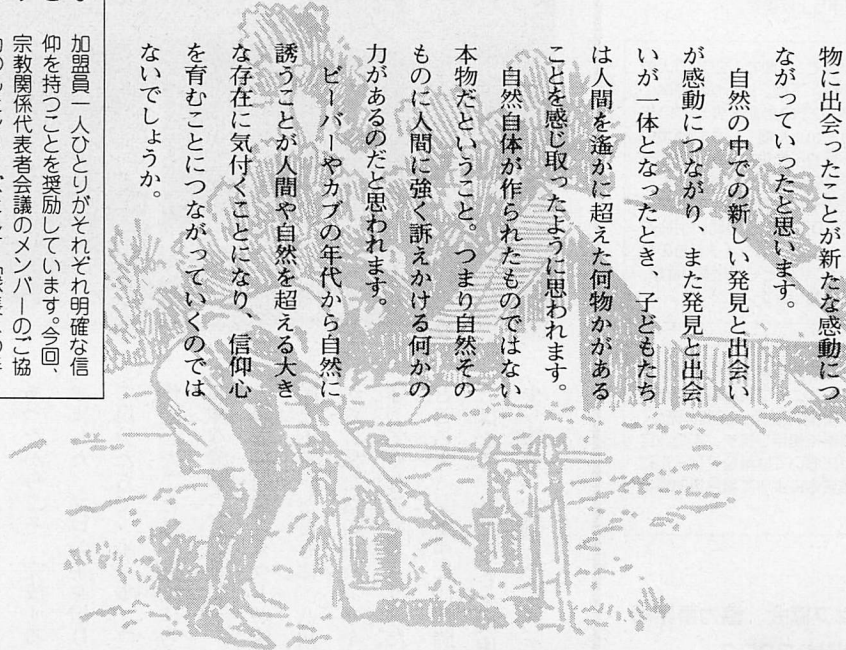 物に出会ったことが新たな感動につ
ながっていったと思います。
自然の中での新しい発見と出会い
が感動につながり、また発見と出会
いが一体となったとき、子どもたち
は人間を遥かに超えた何物かがある
ことを感じ取ったように思われます。
自然自体が作られたものではない
本物だということ。つまり自然その
ものに人間に強く訴えかける何かの
力があるのだと思われます。
ビーバーやカブの年代から自然に
誘うことが人間や自然を超える大き
な存在に気付くことになり、信仰心
を育むことにつながっていくのでは
ないでしょうか。
加盟員一人ひとりがそれぞれ明確な信
仰を持つことを奨励しています。今回、
宗教関係代表者会議のメンバーのご協